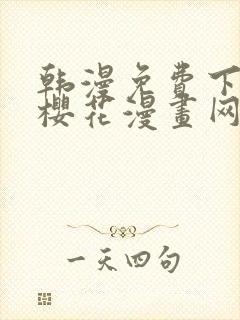 韩漫免费下
樱花漫画网
一天四句